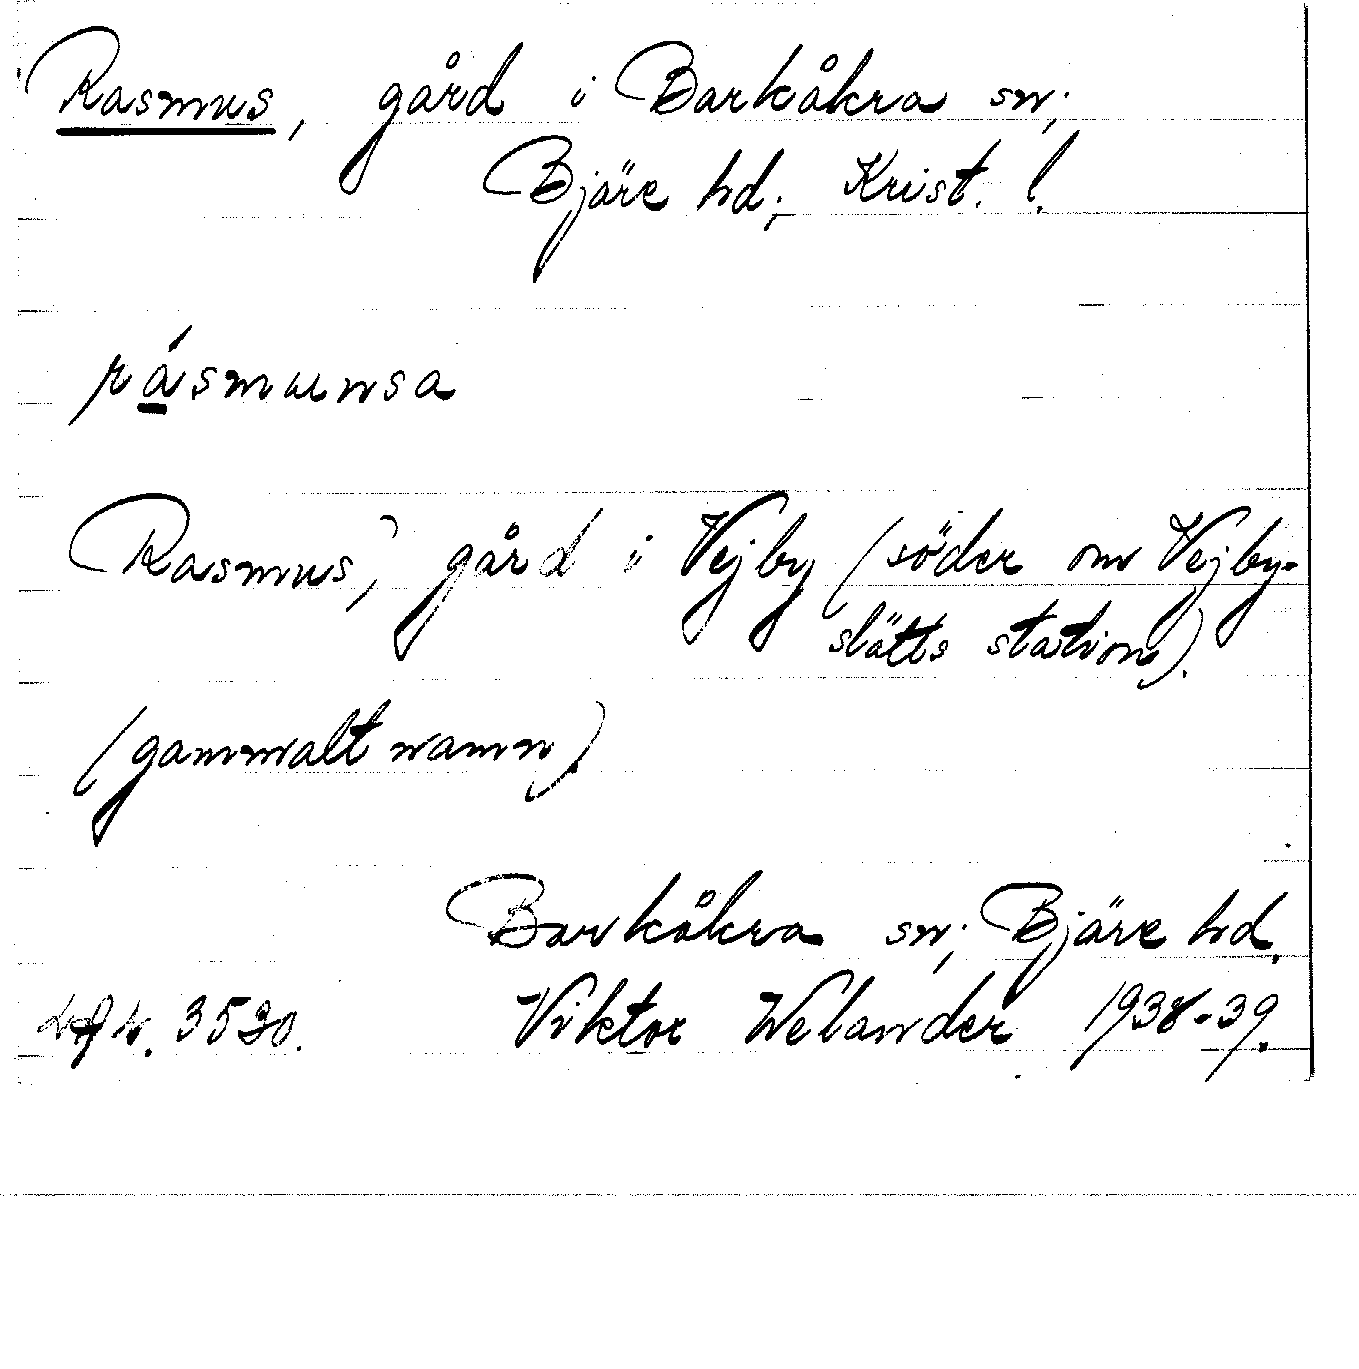 Rasmus, gård i Barkåkra sn;
Bjäre hd; Krist. l.
rásmunsa
Rasmus', gård i Vejby (söder om Vejby-
slätts station).
(gammalt namn)
Barkåkra sn; Bjäre hd.
3530. Viktor Welander 1938-39.